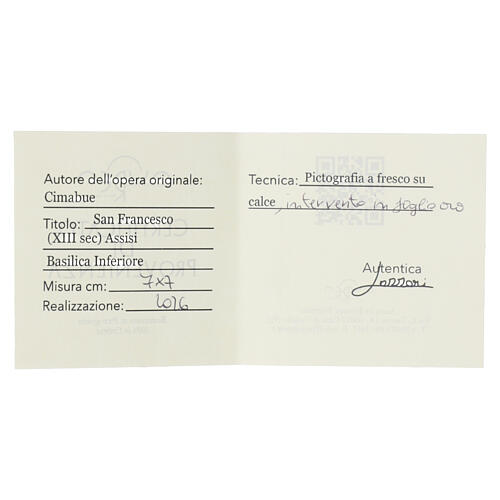 Autore dell'opera originale:
Cimabue
Titolo: San Francesco
(XIII sec) Assisi
Basilica Inferiore
Misura cm: 7x7
Realizzazione: 2026
Tecnica: Pictografia a fresco su
calce, intervento in foglia oro
Autentica